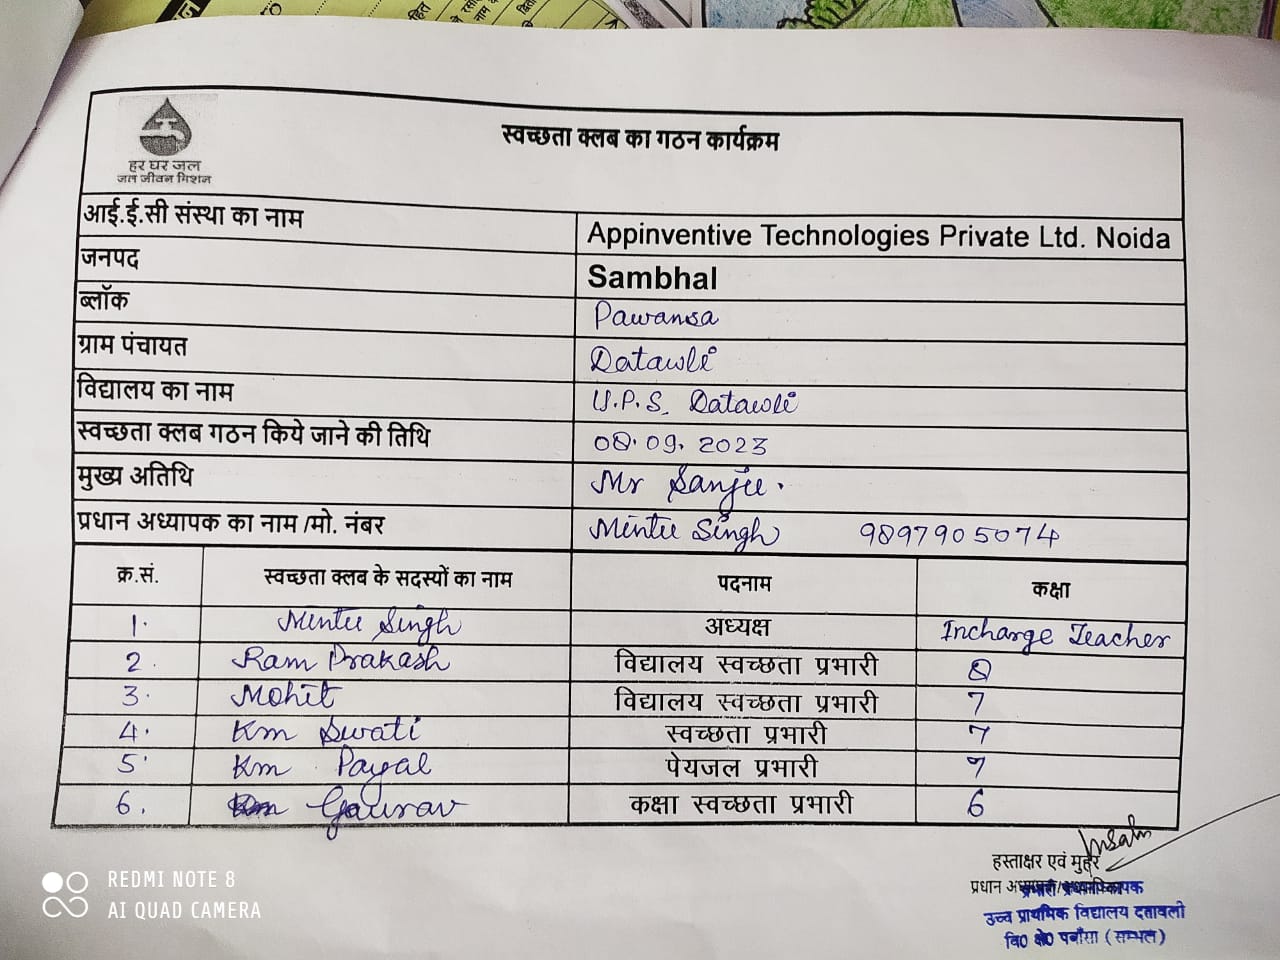 हर घर जल
जल जीवन मिशन
स्वच्छता क्लब का गठन कार्यक्रम
आई.ई.सी संस्था का नाम Appinventive Technologies Private Ltd. Noida
जनपद Sambhal
ब्लॉक Pawansa
ग्राम पंचायत Datawli
विद्यालय का नाम U.P.S. Datawli
स्वच्छता क्लब गठन किये जाने की तिथि 08.09.2023
मुख्य अतिथि Mr Sanjee.
प्रधान अध्यापक का नाम /मो. नंबर Mintu Singh 9897905074
क्र.सं. स्वच्छता क्लब के सदस्यों का नाम पदनाम कक्षा
1. Mintu Singh अध्यक्ष Incharge Teacher
2. Ram Prakash विद्यालय स्वच्छता प्रभारी 8
3. Mohit विद्यालय स्वच्छता प्रभारी 7
4. Km Swati स्वच्छता प्रभारी 7
5. Km Payal पेयजल प्रभारी 7
6. Gaurav कक्षा स्वच्छता प्रभारी 6
हस्ताक्षर एवं मुहर
प्रधान
उच्च प्राथमिक विद्यालय दतावली
वि० क्षे० पवाँसा (सम्भल)
REDMI NOTE 8
AI QUAD CAMERA